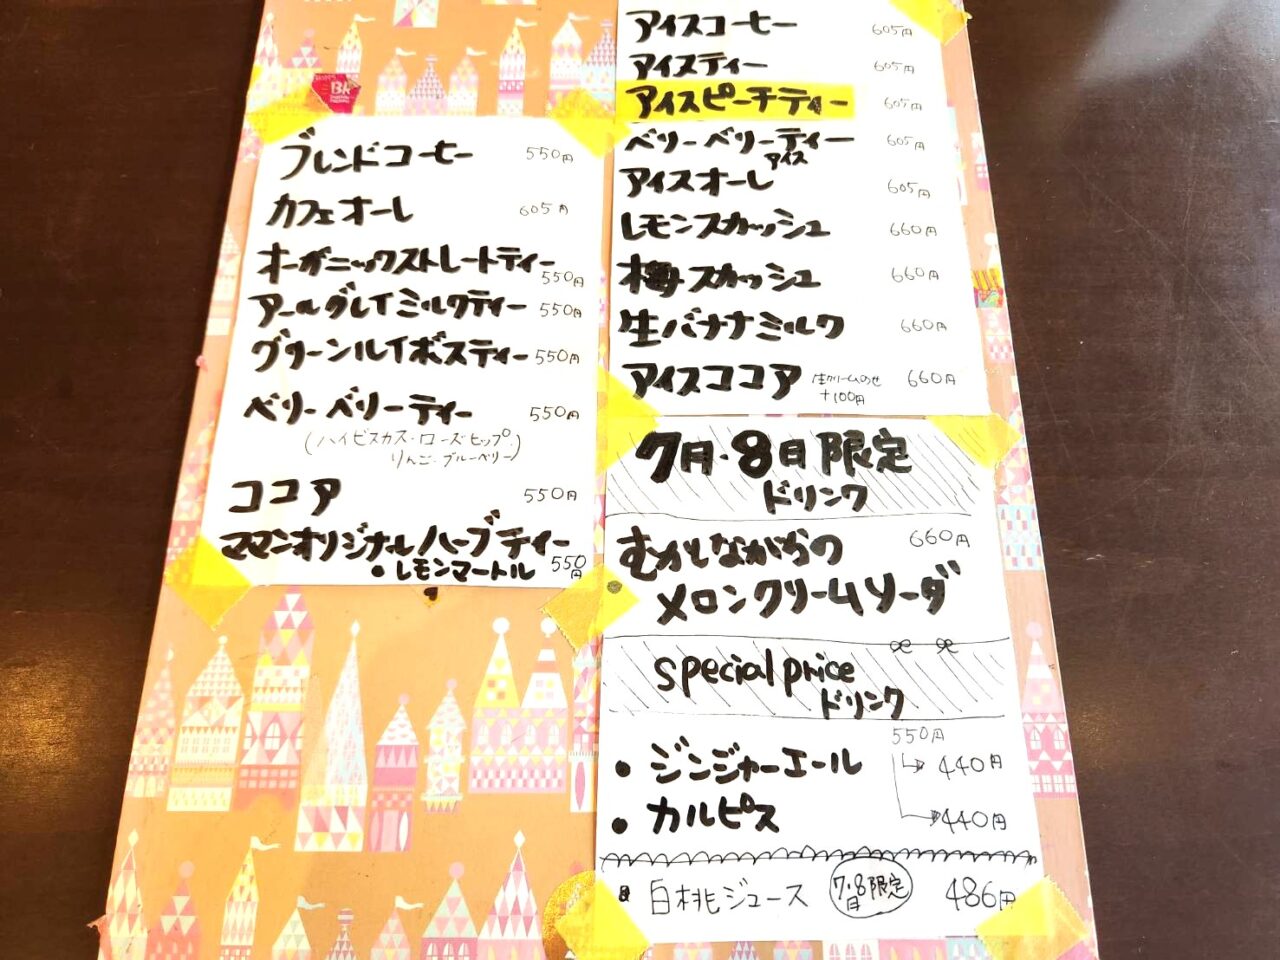 ブレンドコーヒー 550円
カフェオーレ 605円
オーガニックストレートティー
550円
アールグレイミルクティー 550円
グリーンルイボスティー 550円
ベリーベリーティー 550円
(ハイビスカス・ローズヒップ・
りんご・ブルーベリー)
ココア 550円
ママンオリジナルハーブティー
・レモンマートル 550円
アイスコーヒー 605円
アイスティー 605円
アイスピーチティー 605円
ベリーベリーティー 605円
アイス
アイスオーレ 605円
レモンスカッシュ 660円
梅スカッシュ 660円
生バナナミルク 660円
アイスココア 生クリームのせ 660円
+100円
7月・8日限定
ドリンク
むかしながらの 660円
メロンクリームソーダ
special price
ドリンク
550円
・ジンジャーエール 440円
・カルピス 440円
白桃ジュース 7・8日限定 486円